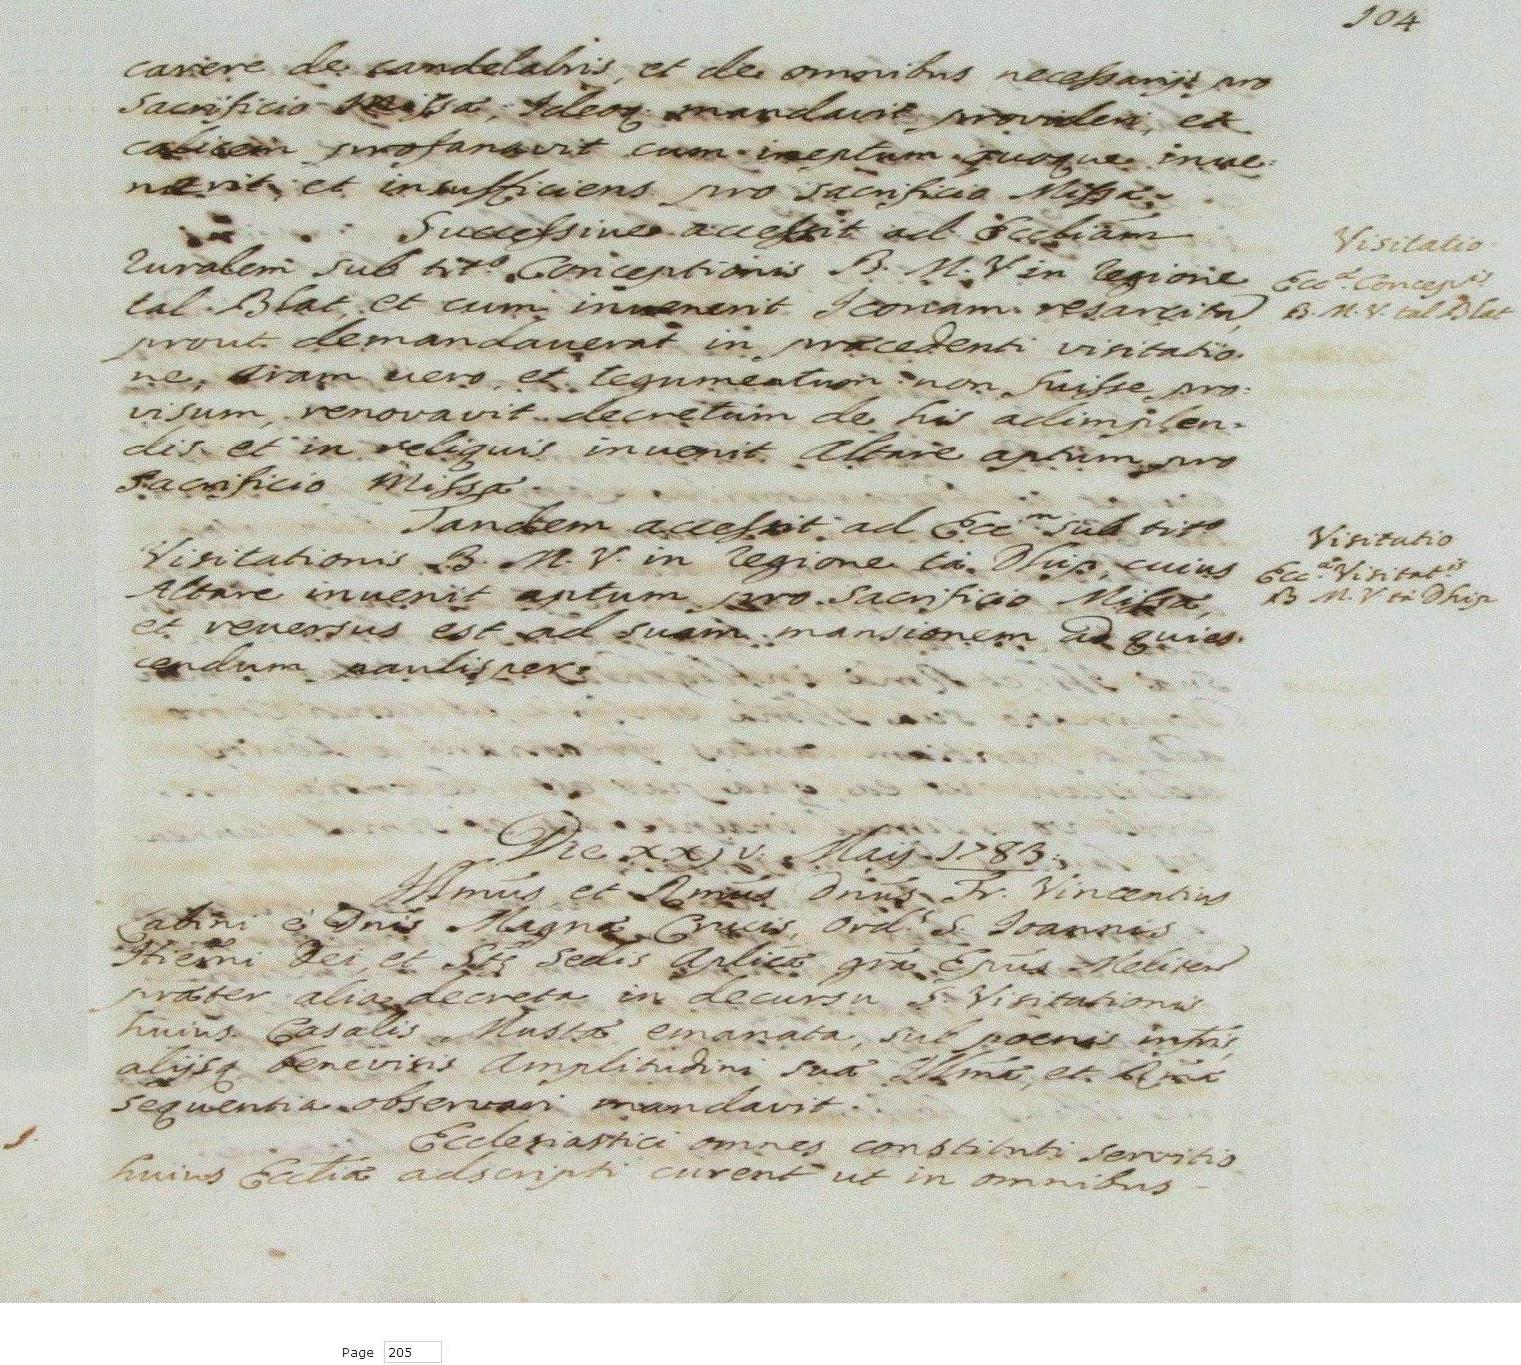 104
carere de candelabris, et de omnibus necessarijs pro
Sacrificio Missæ, Ideoq mandavit provideri, et
calicem profanavit cum ineptum quoque inue-
nerit, et insufficiens pro sacrificio Missæ.
Successive accessit ad Eccliam
Ruralem sub titº Conceptionis B. M. V in Regione
tal Blat, et cum invenerit Iconam resarcita,
prout demandauerat in præcedenti visitatio-
ne, Aram uero, et tegumentum non fuisse pro-
visum, renovavit decretum de his adimplen-
dis et in reliquis inuenit Altare aptum pro
Sacrificio Missæ
Visitatio
Eccæ Concepnis
B. M. V. tal Blat
Tandem accessit ad Eccm sub titº
Visitationis B. M. V. in Regione ta Dhip, cuius
Altare inuenit aptum pro Sacrificio Missæ,
et reuersus est ad suam mansionem ad quies-
cendum paulisper.
Visitatio
Eccæ Visitatis
B M. V ta Dhip
Die xxjv. Maij 1783.
Illmus et Rmus Dnus Fr. Vincentius
Labini è Dnis Magnæ Crucis Ord.s S. Ioannis
Hierni Dei, et Stæ Sedis Aplicæ grã Epus Meliten
præter alia decreta in decursu S. Visitationis
huius Casalis Mustæ emanata, sub poenis infris,
alijsq benevisis Amplitudini suæ Illmæ, et Rmæ
sequentia observari mandavit.
1.
Ecclesiastici omnes constituti servitio
huius Eccliæ adscripti curent ut in omnibus
Page 205